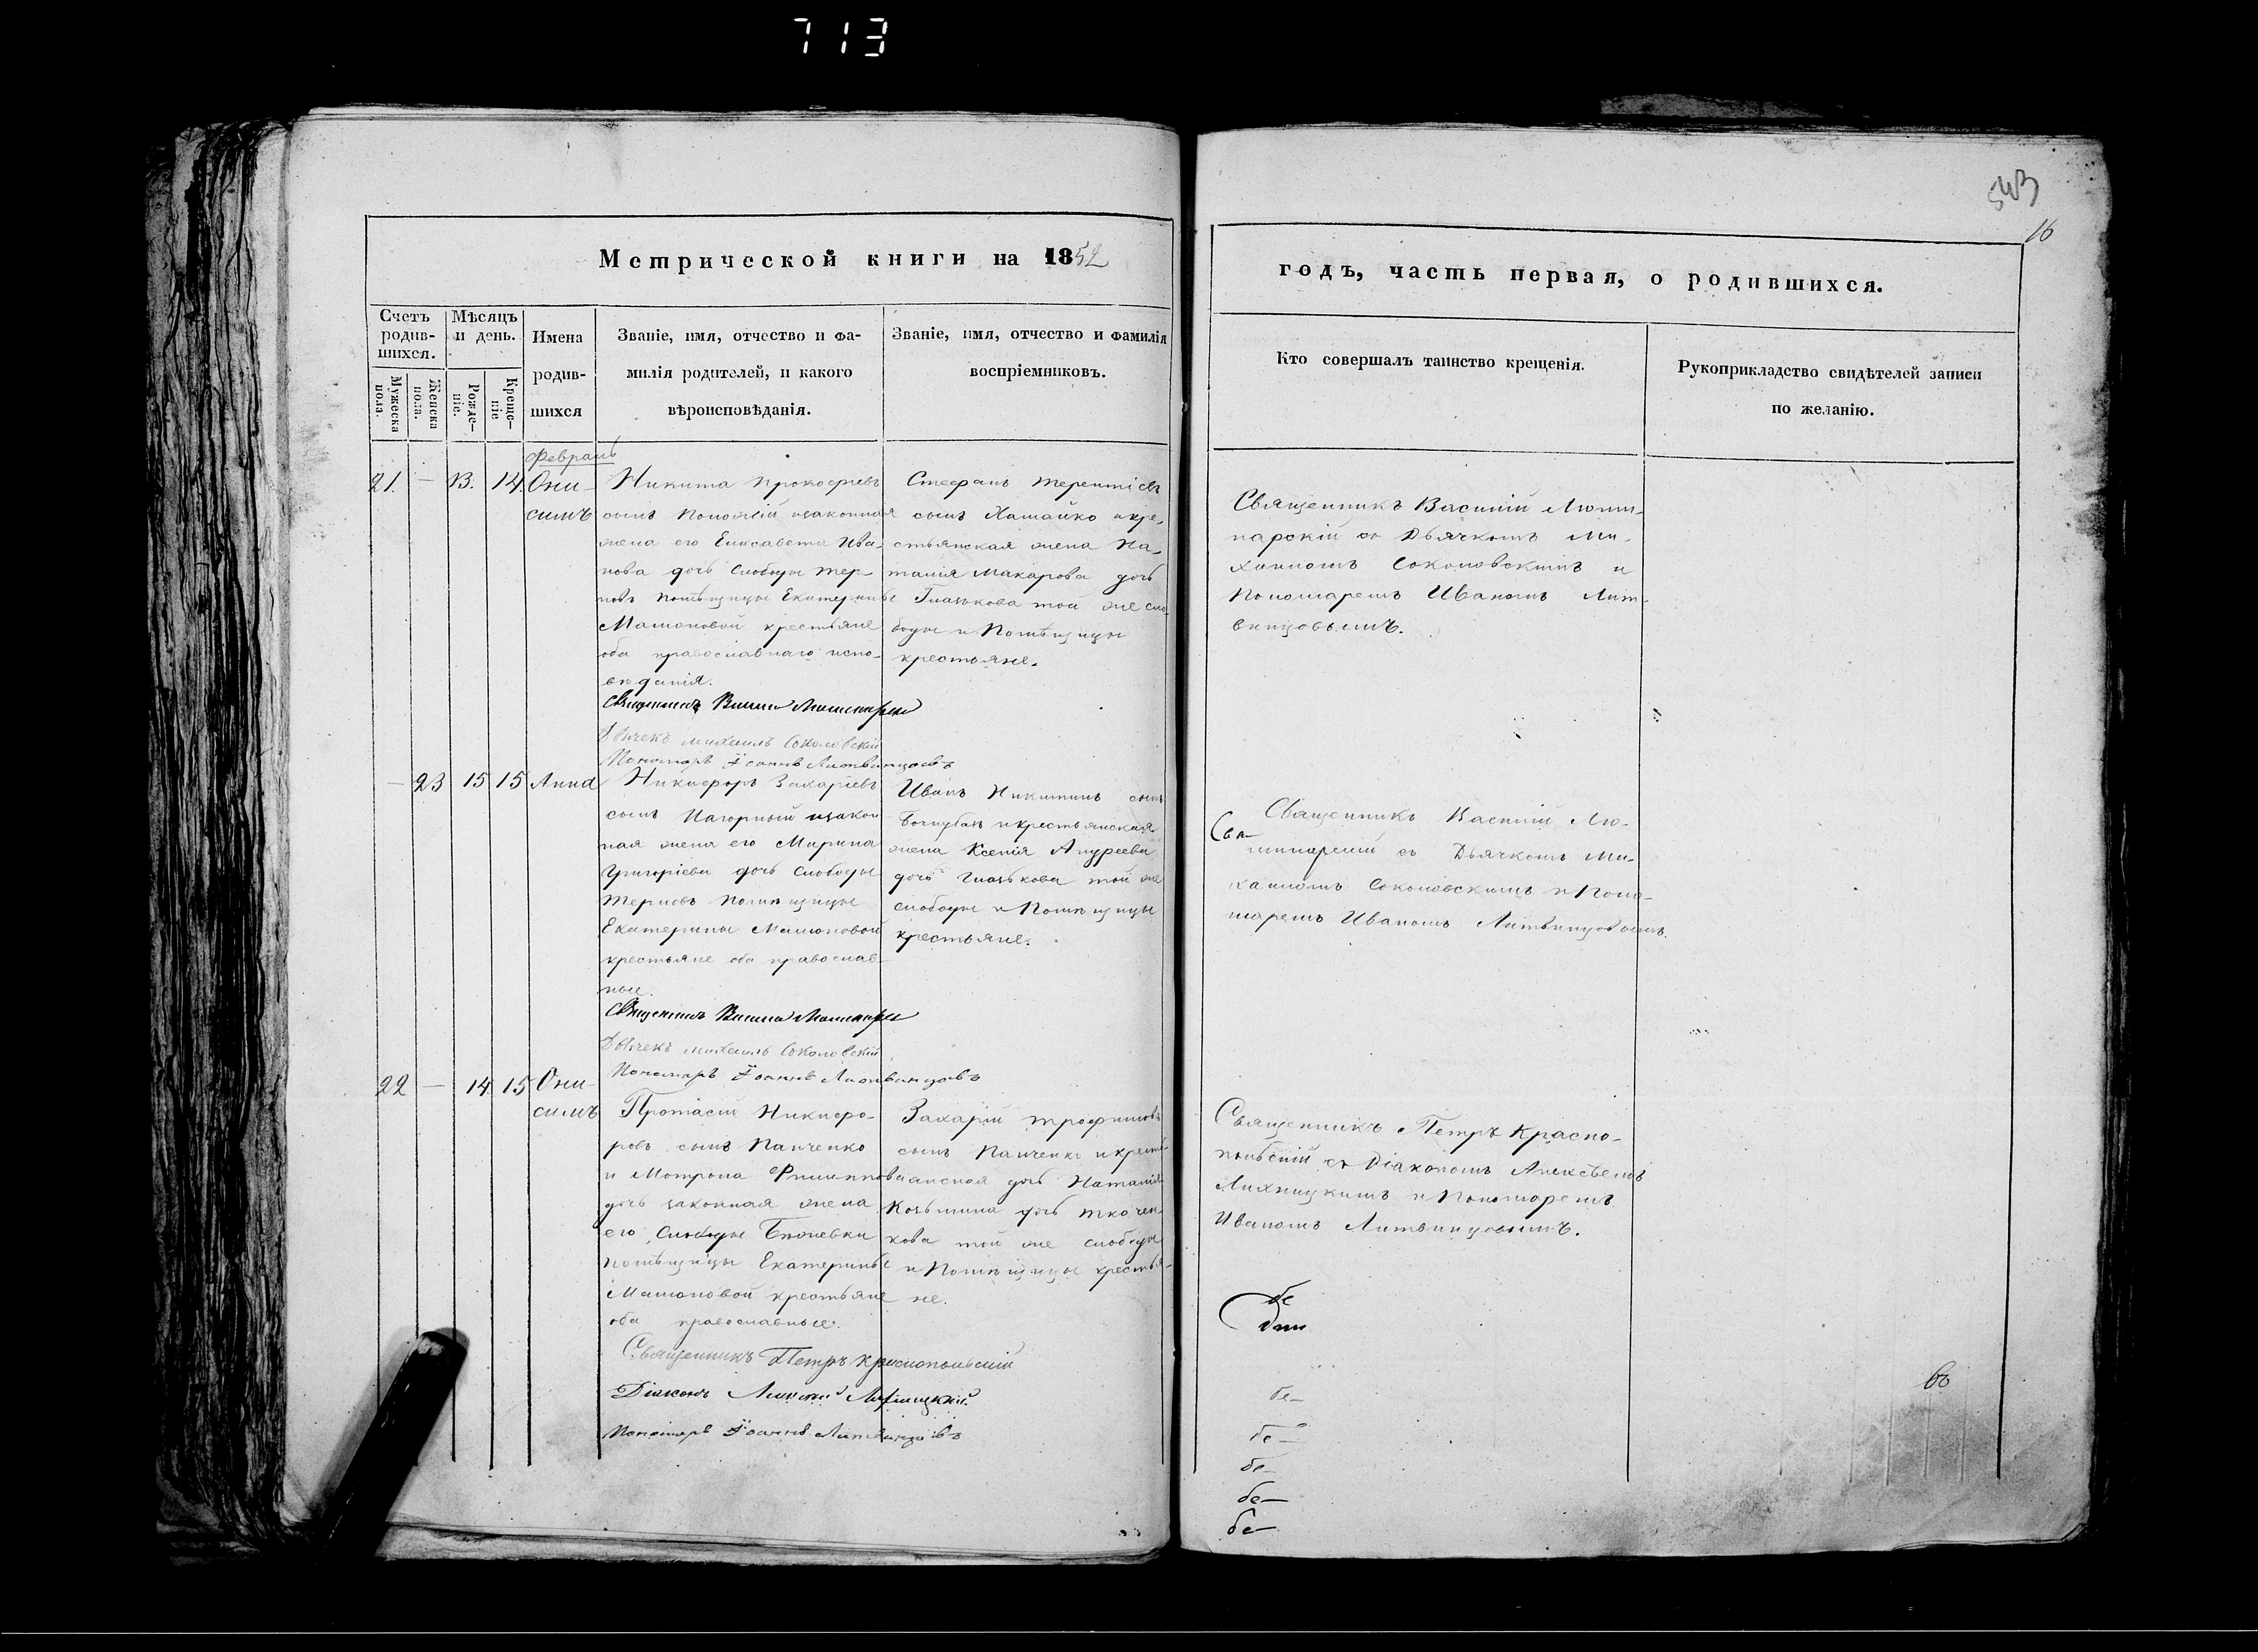 713
543
16
Метрической книги на 1852
годъ, часть первая, о родившихся.
Счетъ родив-шихся.
Мѣсяцъ и день.
Мужеска пола.
Женска пола.
Рожде-ніе.
Креще-ніе
Имена
родив-
шихся
Званіе, имя, отчество и фа-
милія родителей, и какого
вѣроисповѣданія.
Званіе, имя, отчество и фамилія
воспріемниковъ.
Кто совершалъ таинство крещенія.
Рукоприкладство свидѣтелей записи
по желанію.
Февраль
21. — 13. 14. Они-
симъ
Никита Прокофіевъ
сынъ изаконная
жена его Елисавета Ива-
нова дочь Слободы Тер-
новъ помѣщицы Екатерины
крестьяне
оба православнаго испо-
вѣданія.
Священникъ
Дьячекъ Михаилъ Соколовскій
Пономарь Іоаннъ Литвинцовъ
Стефанъ Терентіевъ
сынъ Хатайко икре-
стьянская жена На-
талія Макарова дочь
Глазькова той же сло-
боды и Помѣщицы
крестьяне.
Священникъ Василій
съ Дьячкомъ Ми-
хаиломъ Соколовскимъ и
Пономаремъ Иваномъ Лит-
винцовымъ.
— 23 15 15 Анна
Никифоръ Захаріевъ
сынъ Нагорный изакон
ная жена его Марина
Григоріева дочь Слободы
Терновъ помѣщицы
Екатерины
крестьяне оба православ-
ные.
Священникъ
Дьячекъ Михаилъ Соколовскій
Пономарь Іоаннъ Литвинцовъ
Иванъ Никитинъ сынъ
икрестьянская
жена Ксенія Андреева
дочь Глазькова той же
слободы и Помѣщицы
крестьяне.
Свя-
Священникъ Василій
съ Дьячкомъ Ми-
хаиломъ Соколовскимъ и Поно-
маремъ Иваномъ Литвинцовымъ.
22 — 14 15 Они-
симъ
Протасій Никифо-
ровъ сынъ Панченко
и Мотрона Филиппова
дочь законная жена
его, Слободы
помѣщицы Екатерины
крестьяне
оба православные.
Священникъ Петръ Краснопольскій
Діаконъ
Пономарь Іоаннъ Литвинцовъ
Захарій Трофимовъ
сынъ Панченко икресть
янская дочь Наталія
Козьмина дочь Ткачен
кова той же слободы
и Помѣщицы крестья-
не.
Священникъ Петръ Красно-
польскій съ Діакономъ Алексѣемъ
и Пономаремъ
Иваномъ Литвинцовымъ.
бе
бе—
бе—
бе—
бе—
бе—